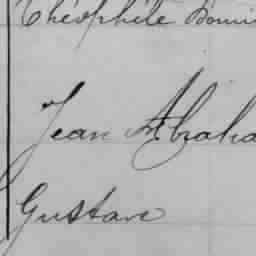 Théophile Domi
Jean Abraha
Gustave